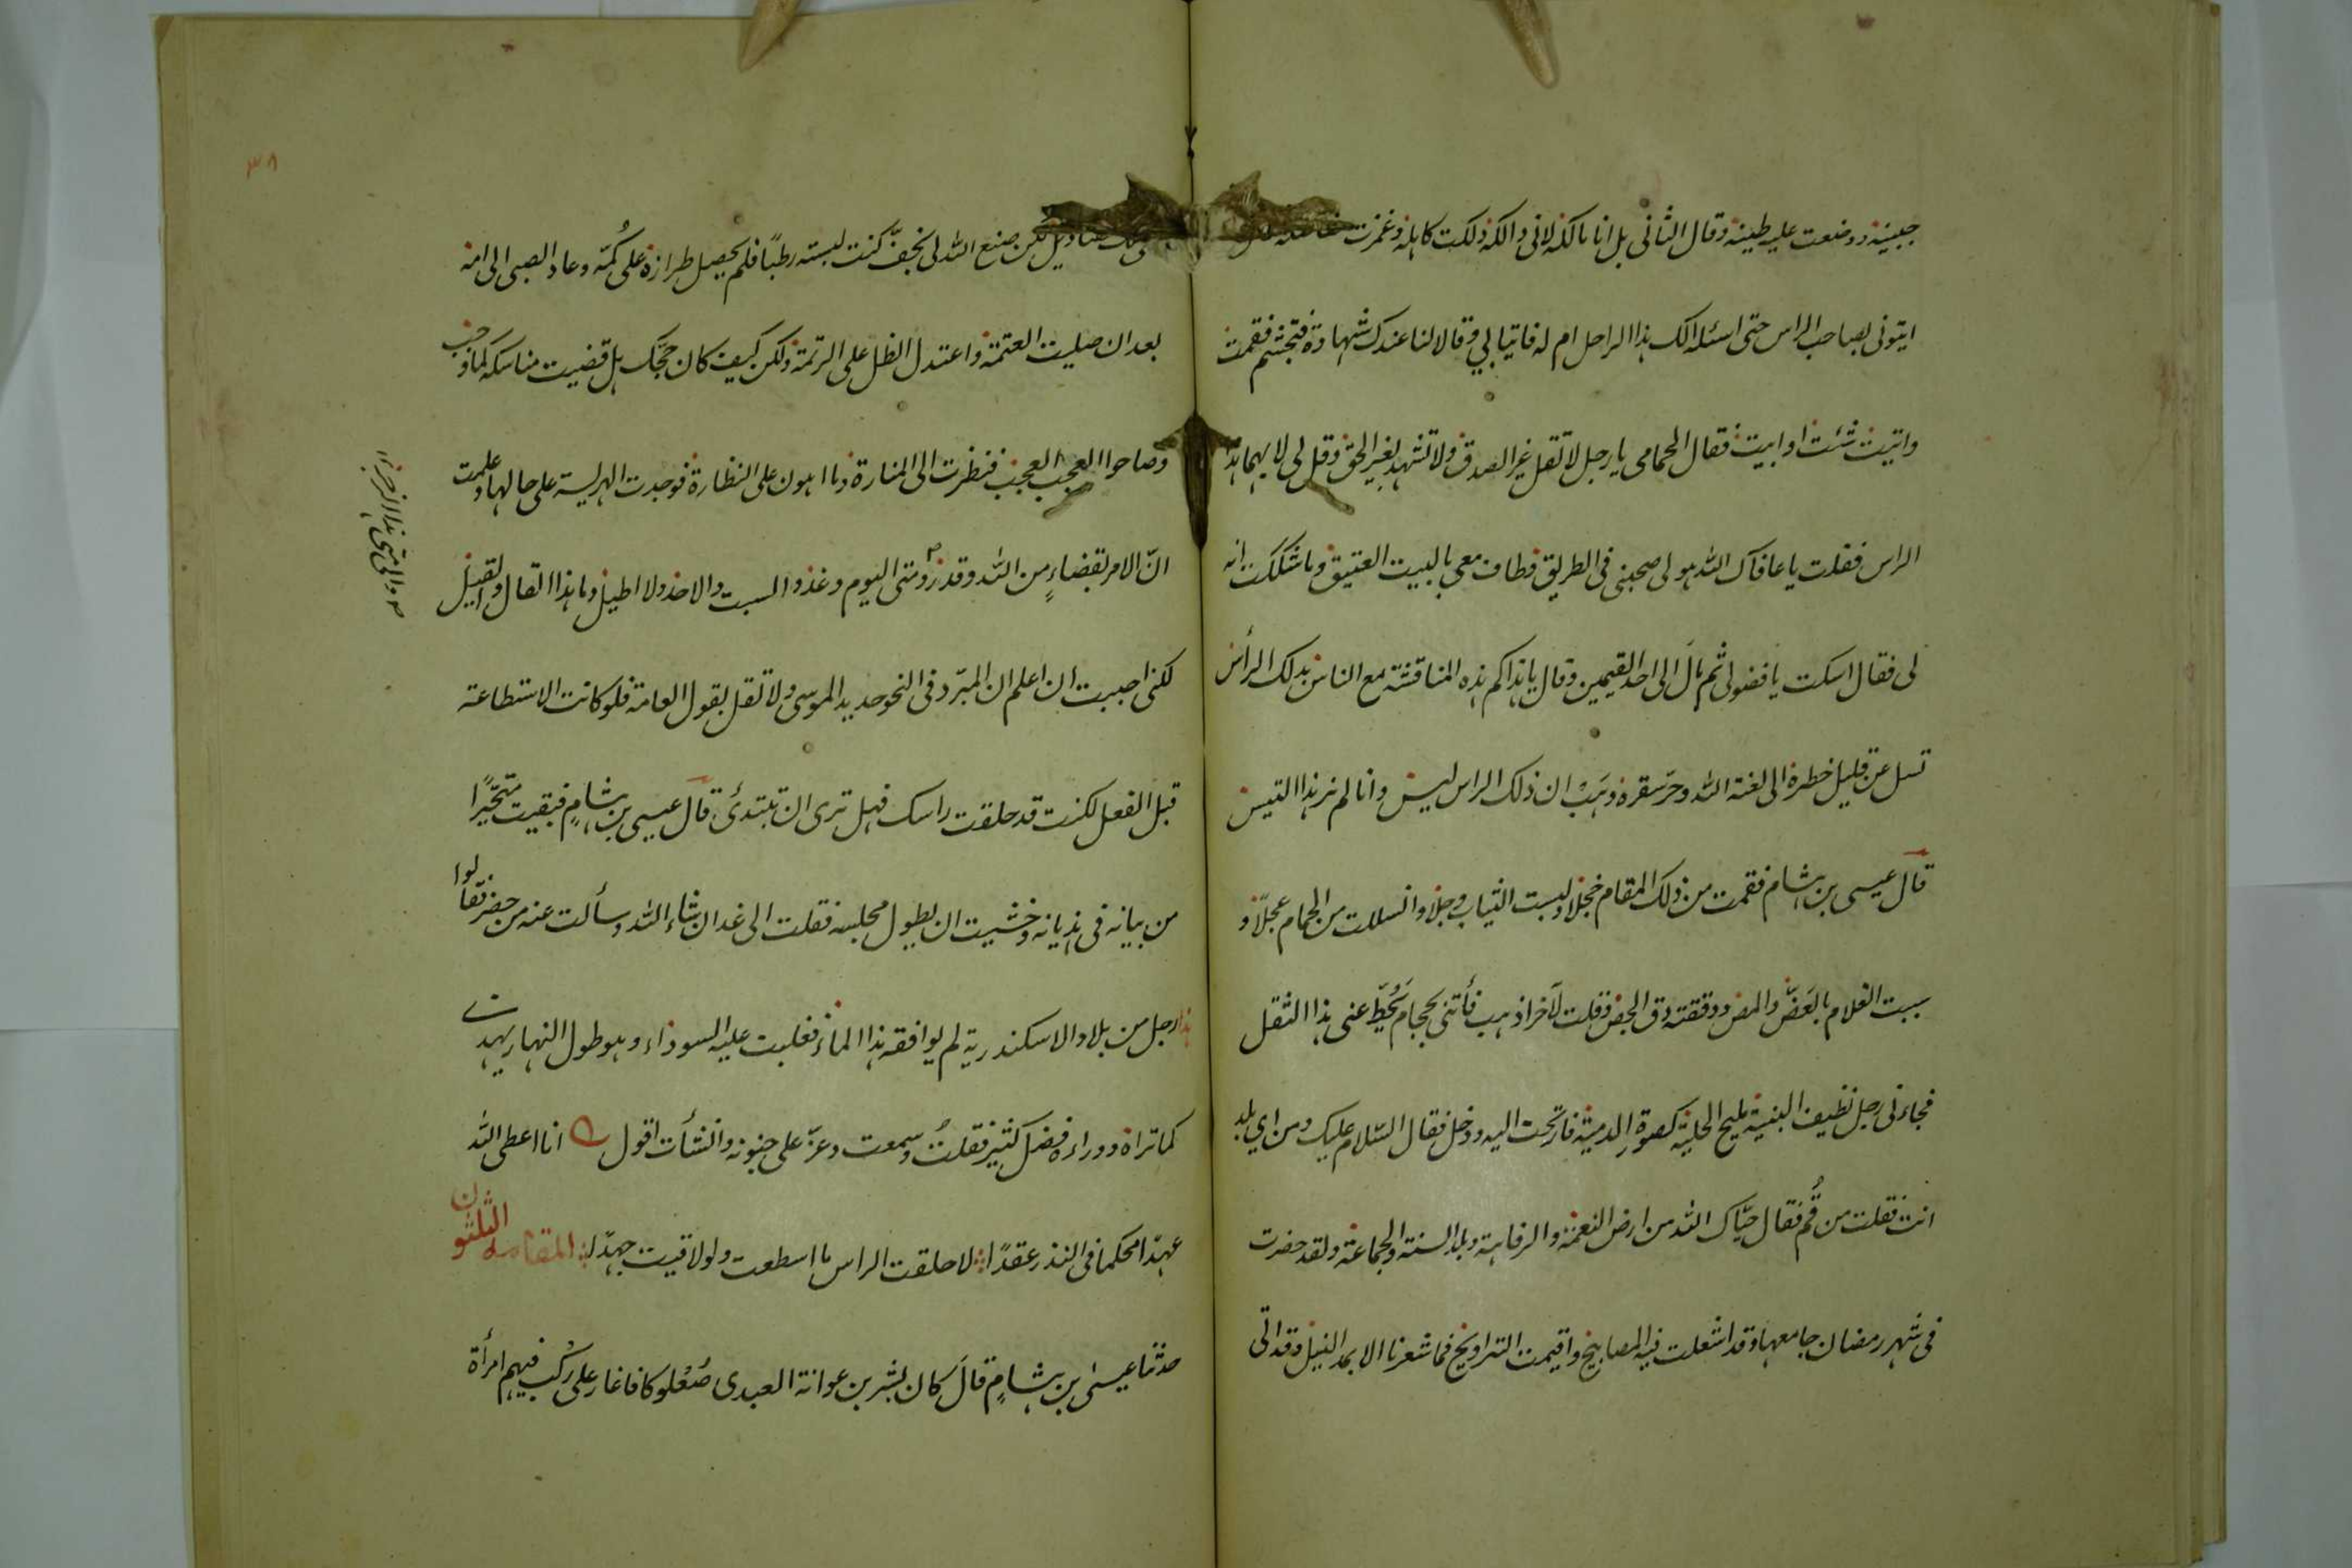 جبينه ووضعت عليه طينه وقال الثاني بل انا مالكه لاني دلكته دلكت كاهله وغمزت مفاصله فقال
ايتوني بصاحب الراس حتى اسئله الك هذا الراس ام له فاتيا لي وقالا لنا عندك شهادة فتجشم فقمت
واتيت شئت او ابيت فقال الحمامي يا رجل لا تقل غير الصدق ولا تشهد بغير الحق وقل لي لايهما هذا
الراس فقلت يا عافاك الله هو لي صحبني في الطريق وطاف معي بالبيت العتيق وما شككت انه
لي فقال اسكت يا فضولي ثم مال الى احد القيمين وقال يا هذا كم هذه المناقشة مع الناس بذلك الرأس
تسل عن قليل خطره الى لعنة الله وحر سقره وهب ان ذلك الراس ليس وانا لم نر هذا التيس
قال عيسى بن هشام فقمت من ذلك المقام خجلا ولبست الثياب وجلا وانسللت من الحمام عجلا و
سببت الغلام بالعض والمص ودققته دق الجص وقلت لآخر اذهب فأتني بحجام يحط عني هذا الثقل
فجاءني رجل نظيف البنية مليح الحلية كصورة الدمية فارتحت اليه ودخل فقال السلام عليك ومن اي بلد
انت فقلت من قم فقال حياك الله من ارض النعمة والرفاهة وبلد السنة والجماعة ولقد حضرت
في شهر رمضان جامعها وقد اشعلت فيه المصابيح واقيمت التراويح فما شعرنا الا بمد النيل وقد اتى
لكن صنع الله لي بخف كنت لبسته رطبا فلم يحصل طرازه على كمه وعاد الصبي الى امه
بعد ان صليت العتمة واعتدل الظل على الرتمة ولكن كيف كان حجك هل قضيت مناسكه كما وجب
وصاحوا العجب العجب فنظرت الى المنارة وما اهون على النظارة فوجدت الهريسة على حالها وعلمت
ان الامر بقضاء من الله وقدر ومتى اليوم وغد والسبت والاحد ولا اطيل وما هذا القال والقيل
والى متى هذا الضجر
لكني احببت ان اعلم ان المبرد في النحو حديد الموسى ولا تقل بقول العامة فلو كانت الاستطاعة
قبل الفعل لكنت قد حلقت راسك فهل ترى ان تبتدئ قال عيسى بن هشام فبقيت متحيرا
من بيانه في هذيانه وخشيت ان يطول مجلسه فقلت الى غد ان شاء الله وسألت عنه من حضر فقالوا
هذا رجل من بلاد الاسكندرية لم يوافقه هذا الماء فغلبت عليه السوداء وهو طول النهار يهذي
كما تراه ووراءه فضل كثير فقلت وسمعت وعز علي جنونه وانشأت اقول انا اعطي الله
عهدا محكما في النذر عقدا لا حلقت الراس ما اسطعت ولو لاقيت جهدا المقامه الثلثون
حدثنا عيسى بن هشام قال كان بشر بن عوانة العبدي صعلوكا فاغار على ركب فيهم امرأة
٣٨